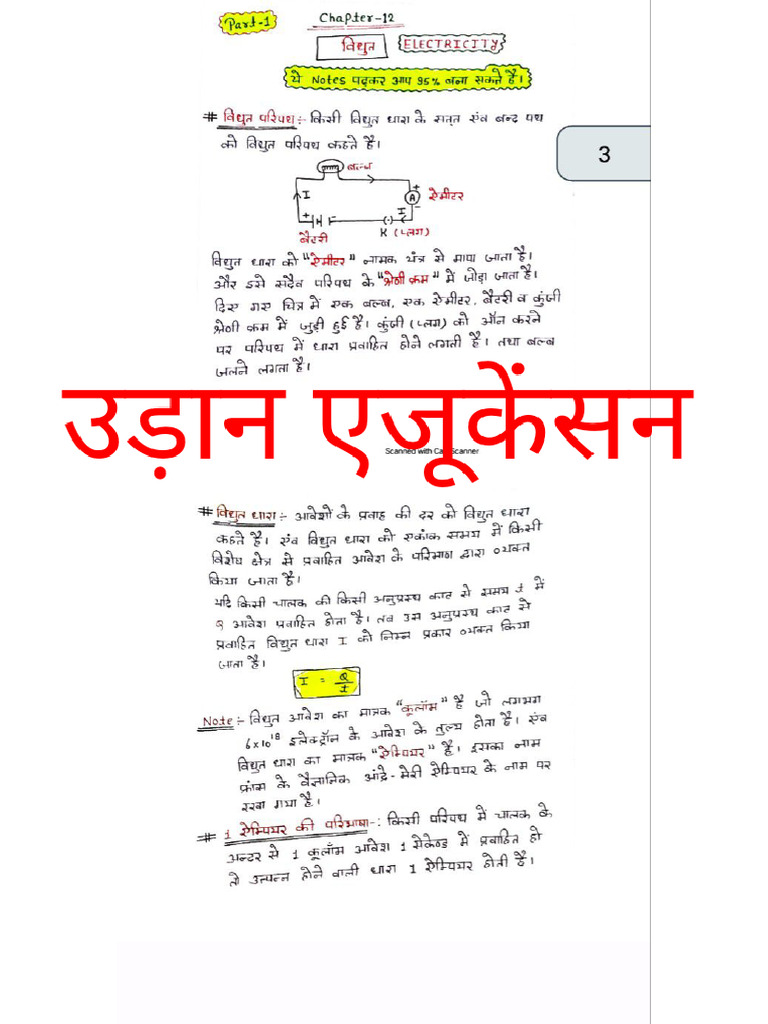 Part-1
Chapter-12
विधुत
ELECTRICITY
ये Notes पढ़कर आप 95% बना सकते है।
# विधुत परिपथ :- किसी विधुत धारा के सतत एंव बन्द पथ
को विधुत परिपथ कहते है।
3
बल्ब
I
+
A
ऐमीटर
-
+
I
बैटरी
K (प्लग)
विधुत धारा को "ऐमीटर" नामक यंत्र से मापा जाता है।
और इसे सदैव परिपथ के "श्रेणी क्रम" में जोड़ा जाता है।
दिए गए चित्र में एक बल्ब, एक ऐमीटर, बैटरी व कुंजी
श्रेणी क्रम में जुड़ी हुई है। कुंजी (प्लग) को ऑन करने
पर परिपथ में धारा प्रवाहित होने लगती है। तथा बल्ब
जलने लगता है।
उड़ान एजूकेंसन
Scanned with Cam Scanner
# विधुत धारा :- आवेशों के प्रवाह की दर को विधुत धारा
कहते है। एंव विधुत धारा को एकांक समय में किसी
विशेष क्षेत्र से प्रवाहित आवेश के परिमाण द्वारा व्यक्त
किया जाता है।
यदि किसी चालक की किसी अनुप्रस्थ काट से समय t में
Q आवेश प्रवाहित होता है। तब उस अनुप्रस्थ काट से
प्रवाहित विधुत धारा I को निम्न प्रकार व्यक्त किया
जाता है।
I = Q/t
Note :- विधुत आवेश का मात्रक "कूलॉम" है जो लगभग
6x10¹⁸ इलेक्ट्रॉन के आवेश के तुल्य होता है। एंव
विधुत धारा का मात्रक "ऐम्पियर" है। इसका नाम
फ्रांस के वैज्ञानिक आंद्रे-मेरी ऐम्पियर के नाम पर
रखा गया है।
# 1 ऐम्पियर की परिभाषा -: किसी परिपथ में चालक के
अन्दर से 1 कूलॉम आवेश 1 सेकेण्ड में प्रवाहित हो
तो उत्पन्न होने वाली धारा 1 ऐम्पियर होती है।